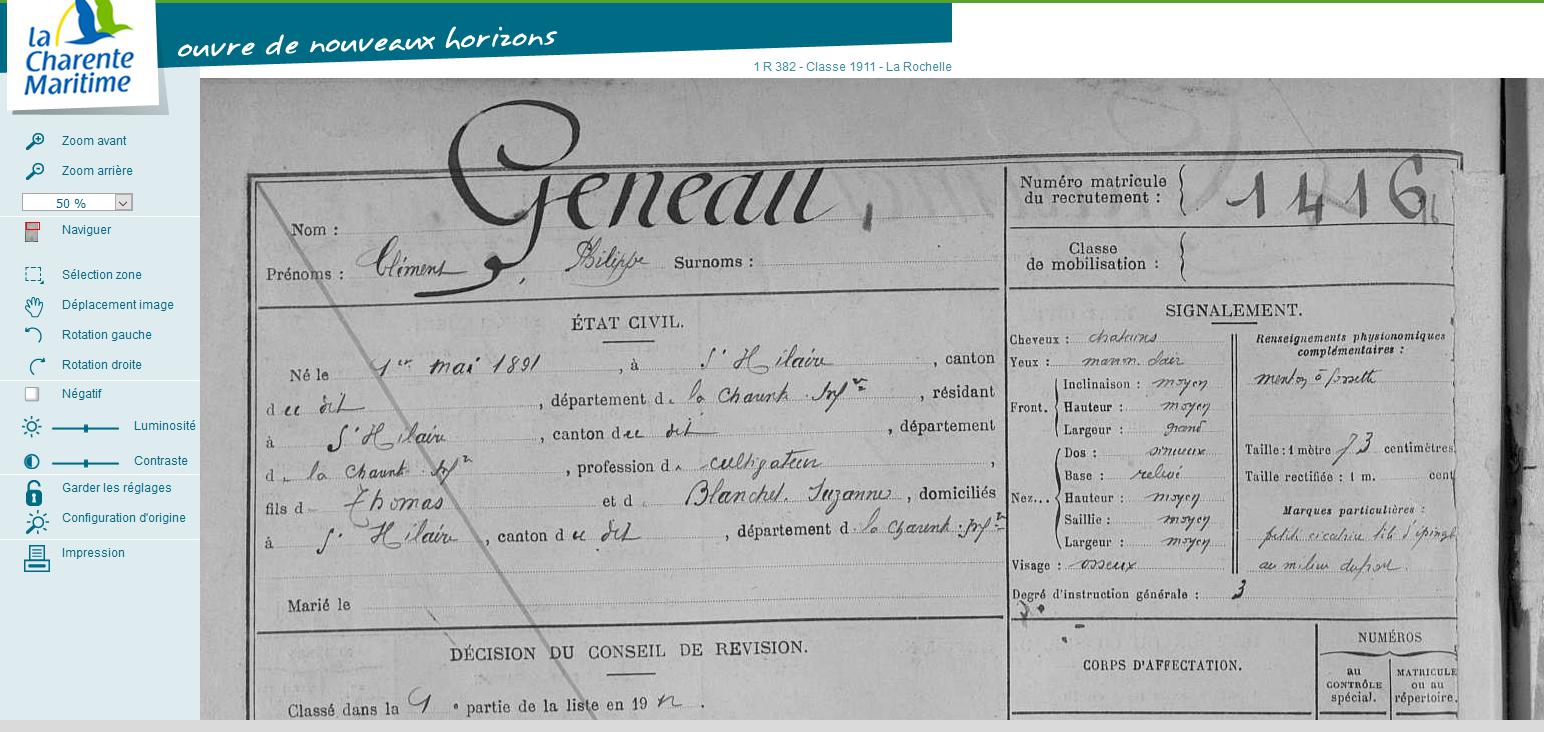 la
Charente
Maritime
ouvre de nouveaux horizons
1 R 382 - Classe 1911 - La Rochelle
Zoom avant
Zoom arrière
50 %
Naviguer
Sélection zone
Déplacement image
Rotation gauche
Rotation droite
Négatif
Luminosité
Contraste
Garder les réglages
Configuration d'origine
Impression
Nom : Geneau
Prénoms : Clément, Philippe Surnoms :
Numéro matricule
du recrutement : 1416
Classe
de mobilisation :
ÉTAT CIVIL.
Né le 1er mai 1891, à St Hilaire, canton
dudit, département de la Charente Infre, résidant
à St Hilaire, canton dudit, département
de la Charente Infre, profession de cultivateur,
fils de Thomas et de Blanchet Suzanne, domiciliés
à St Hilaire, canton dudit, département de la Charente Infre
Marié le
DÉCISION DU CONSEIL DE REVISION.
Classé dans la 1e partie de la liste en 1912.
SIGNALEMENT.
Cheveux : chatains
Yeux : marron clair
Front. Inclinaison : moyen
Hauteur : moyen
Largeur : grand
Nez... Dos : sinueux
Base : relevé
Hauteur : moyen
Saillie : moyen
Largeur : moyen
Visage : osseux
Renseignements physionomiques
complémentaires :
menton à fossette
Taille : 1 mètre 73 centimètres
Taille rectifiée : 1 m. cent
Marques particulières :
petite cicatrice
au milieu du front.
Degré d'instruction générale : 3
CORPS D'AFFECTATION.
NUMÉROS
au
CONTRÔLE
spécial.
MATRICULE
ou au
répertoire.